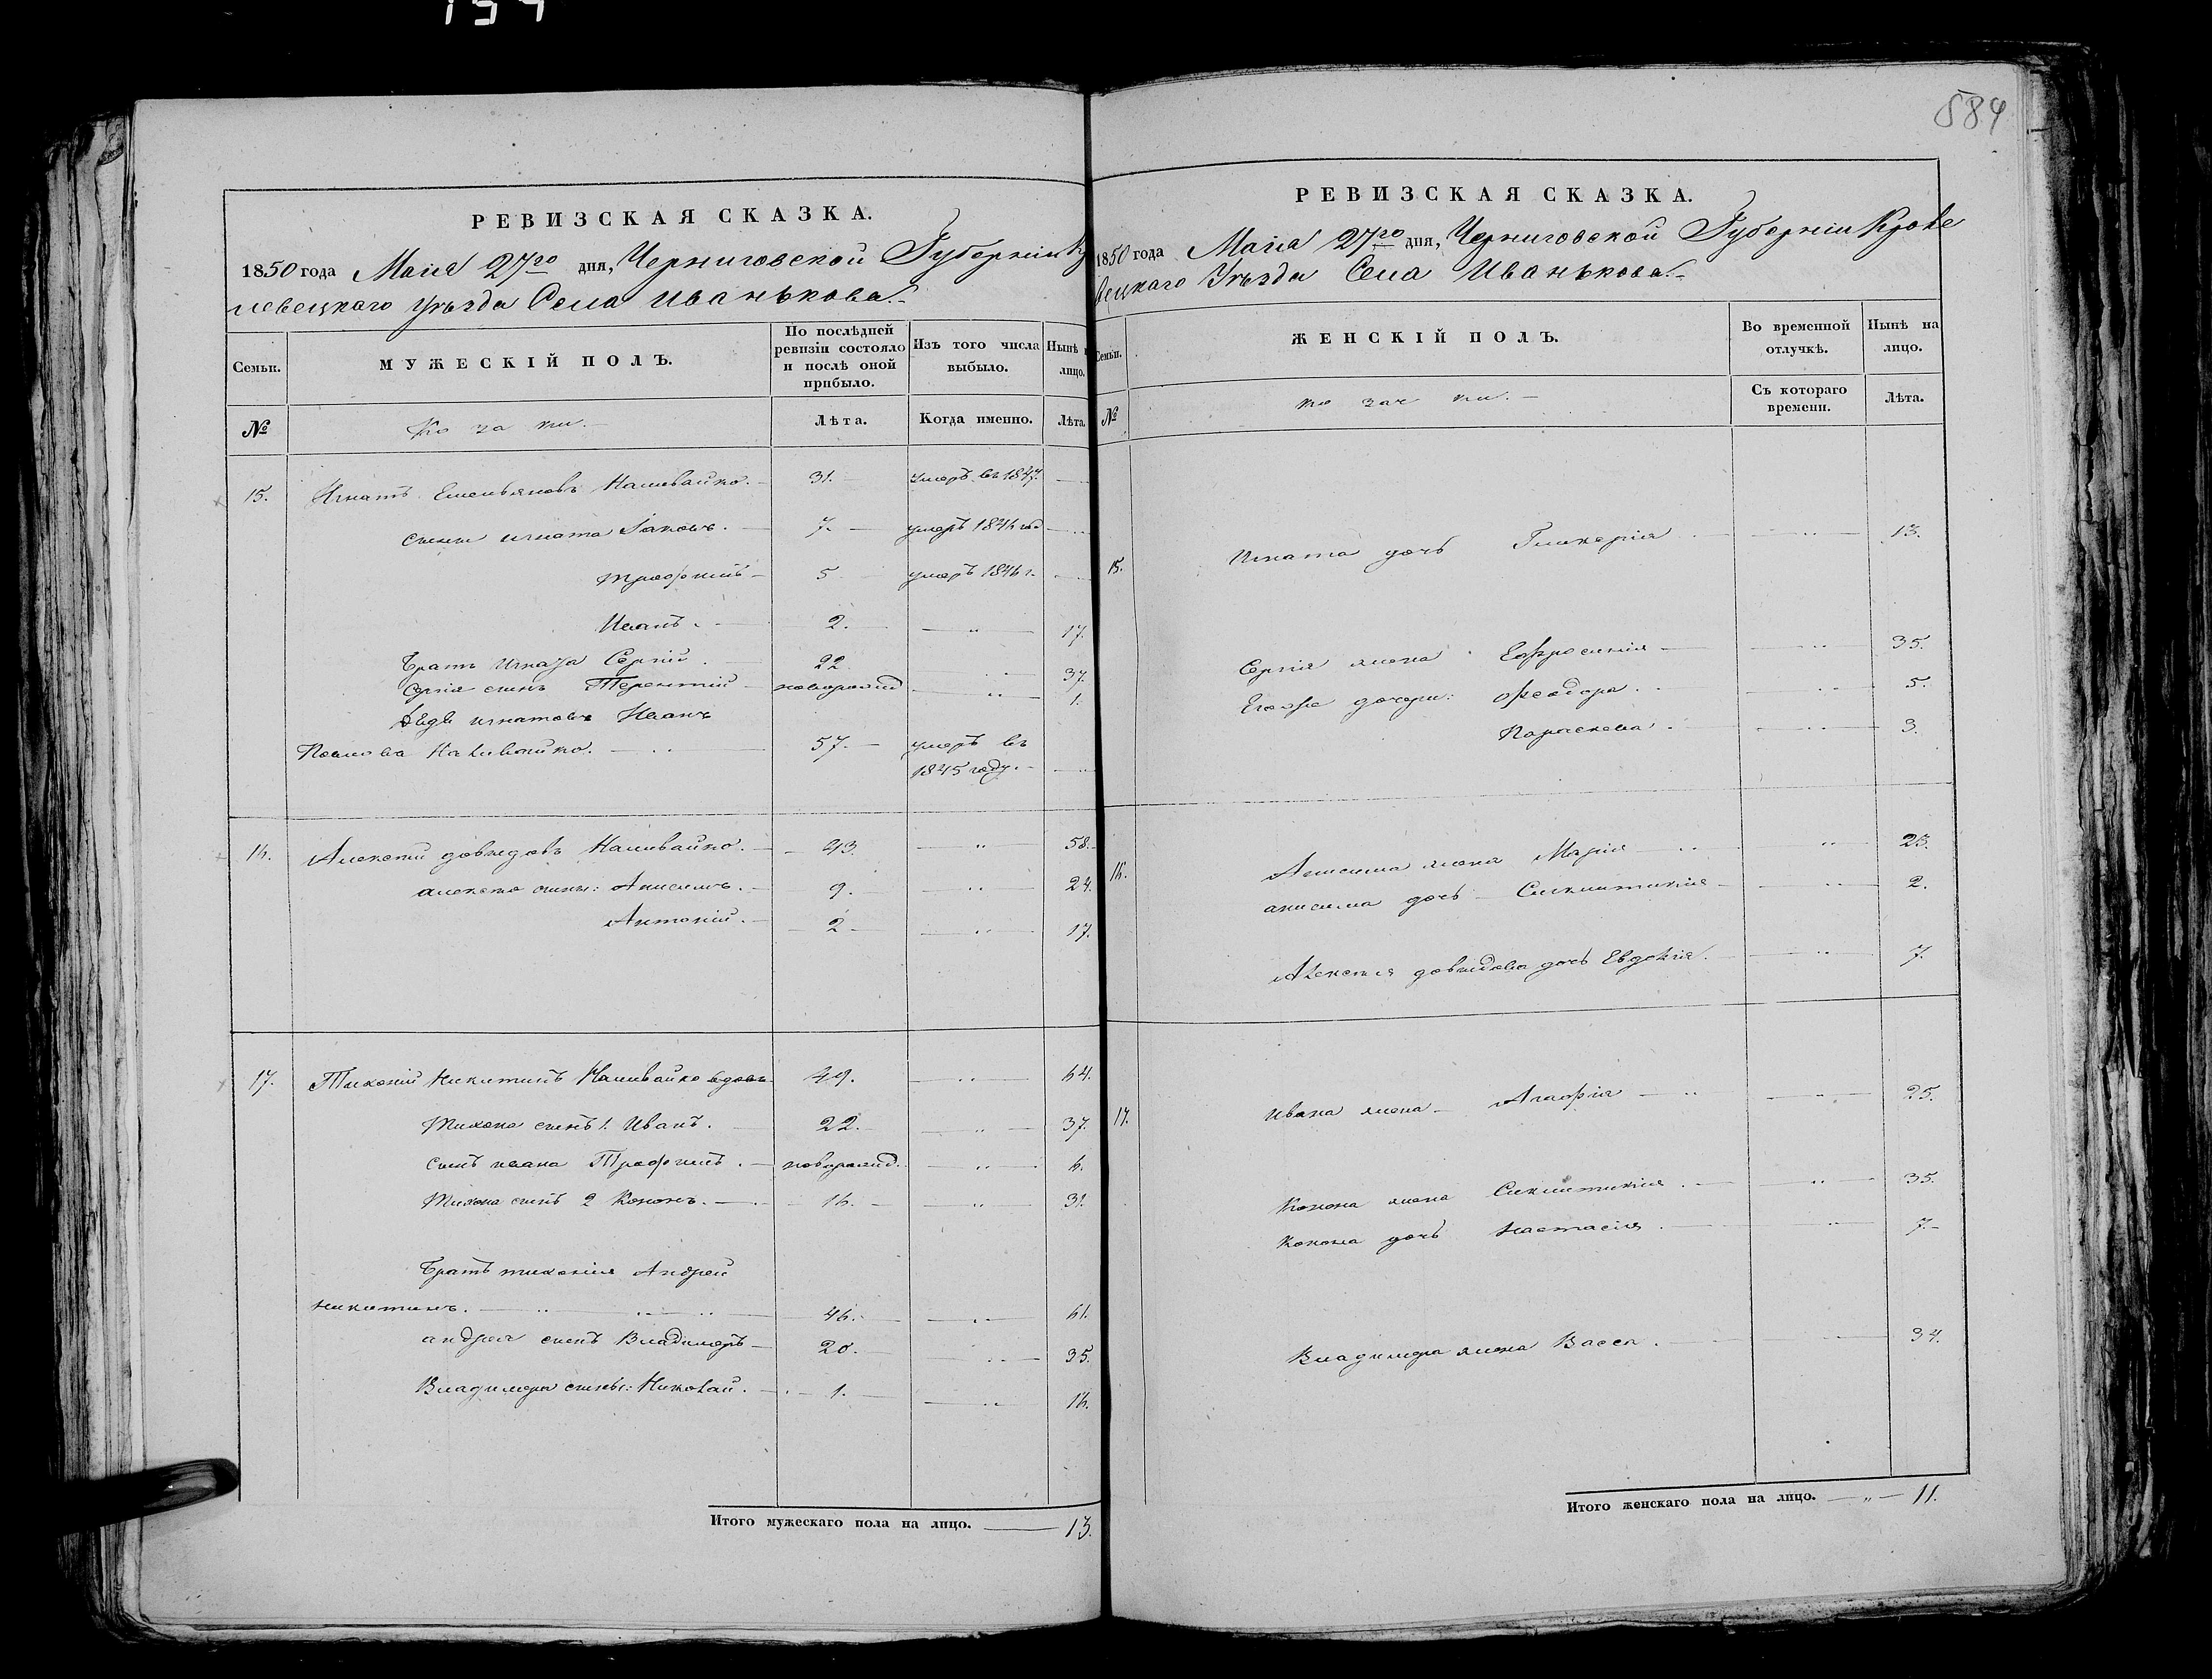 154
584
РЕВИЗСКАЯ СКАЗКА.
1850 года Маия 27го дня, Черниговской Губернiи Кро
левецкаго уѣзда Села Иванькова.
Семьи.
МУЖЕСКІЙ ПОЛЪ.
По послѣдней
ревизіи состояло
и послѣ оной
прибыло.
Изъ того числа
выбыло.
Нынѣ на
лицо.
№
Козаки.
Лѣта.
Когда именно.
Лѣта.
15. Игнатъ Емельяновъ Наливайко. 31. умеръ въ 1847.
сыны игната Іаковъ. 7. умеръ 1846 год
трофимъ 5 умеръ 1846 г.
Иванъ. 2. " 17.
Братъ игната Сергiй. 22 " 37.
Сергiя сынъ Терентiй новорожд " 1.
Дядя игнатовъ Иванъ
Наливайко. 57. умеръ въ
1845 году. "
16. Алексѣй довидовъ Наливайко. 43 " 58.
алексѣя сыны: Анисимъ. 9. " 24.
Антонiй. 2 " 17.
17. Тихонiй Никитинъ Наливайко вдовъ 49. " 64.
Тихона сынъ 1. Иванъ. 22. " 37.
сынъ ивана Трофимъ. новорожд. " 6.
Тихона сынъ 2 Кононъ. 16. " 31.
Братъ тихонiя Андрей
никитинъ. " " 46. " 61.
андрея сынъ Владимеръ 20. " 35.
Владимера сыны: Николай. 1. " 16.
Итого мужескаго пола на лицо. 13.
РЕВИЗСКАЯ СКАЗКА.
1850 года Маия 27го дня, Черниговской Губернiи Кроле
вецкаго Уѣзда Села Иванькова.
Семьи.
ЖЕНСКІЙ ПОЛЪ.
Во временной
отлучкѣ.
Нынѣ на
лицо.
№
козачки.
Съ котораго
времени.
Лѣта.
15. Игната дочь Гликерiя " 13.
Сергiя жена Ефросинiя " 35.
Егоже дочери: Феодора. " 5.
Параскева. " 3.
16. Анисима жена Марiя " 23.
анисима дочь Сикклитикiя " 2.
Алексѣя довидова дочь Евдокiя. " 7.
17. Ивана жена Агафiя " 25.
Конона жена Сикклитикiя. " 35.
Конона дочь Настасiя. " 7.
Владимера жена Васса. " 34.
Итого женскаго пола на лицо. " 11.